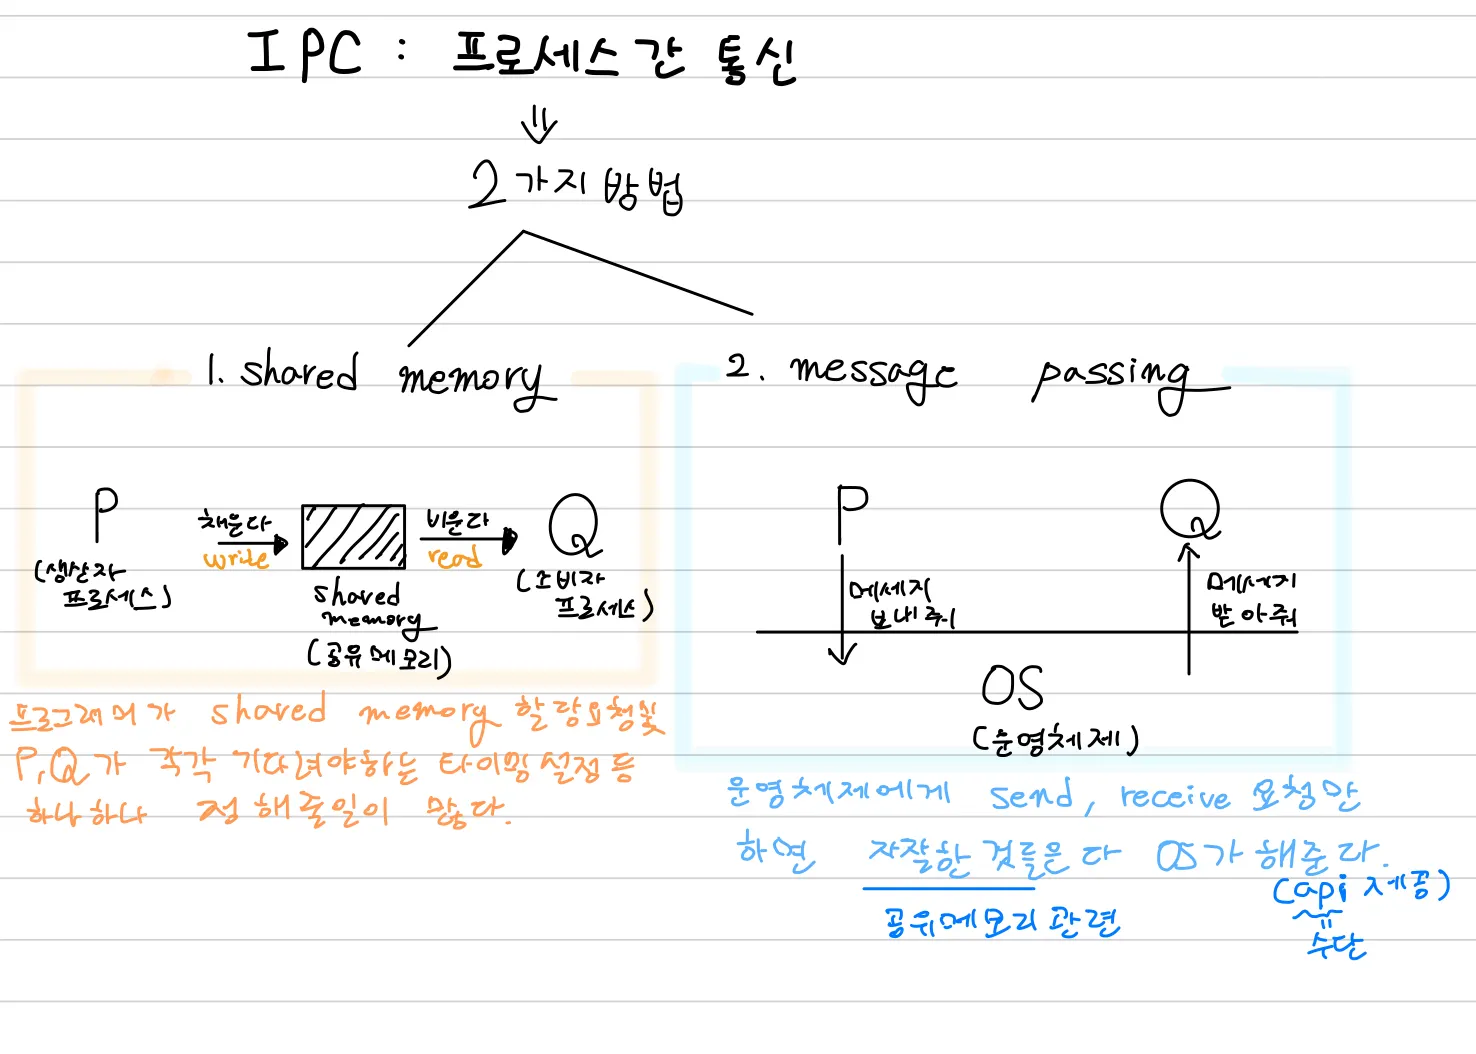 IPC : 프로세스간 통신
2가지방법
1. shared memory
P
(생산자
프로세스)
채운다
write
shared
memory
(공유메모리)
비운다
read
Q
(소비자
프로세스)
프로그래머가 shared memory 할당요청및
P,Q가 각각 기다려야하는 타이밍설정등
하나하나 정해줄일이 많다.
2. message passing
P
메세지
보내줘
Q
메세지
받아줘
OS
(운영체제)
운영체제에게 send, receive 요청만
하면 자잘한 것들은다 OS가 해준다.
공유메모리관련
(api 제공)
=
수단